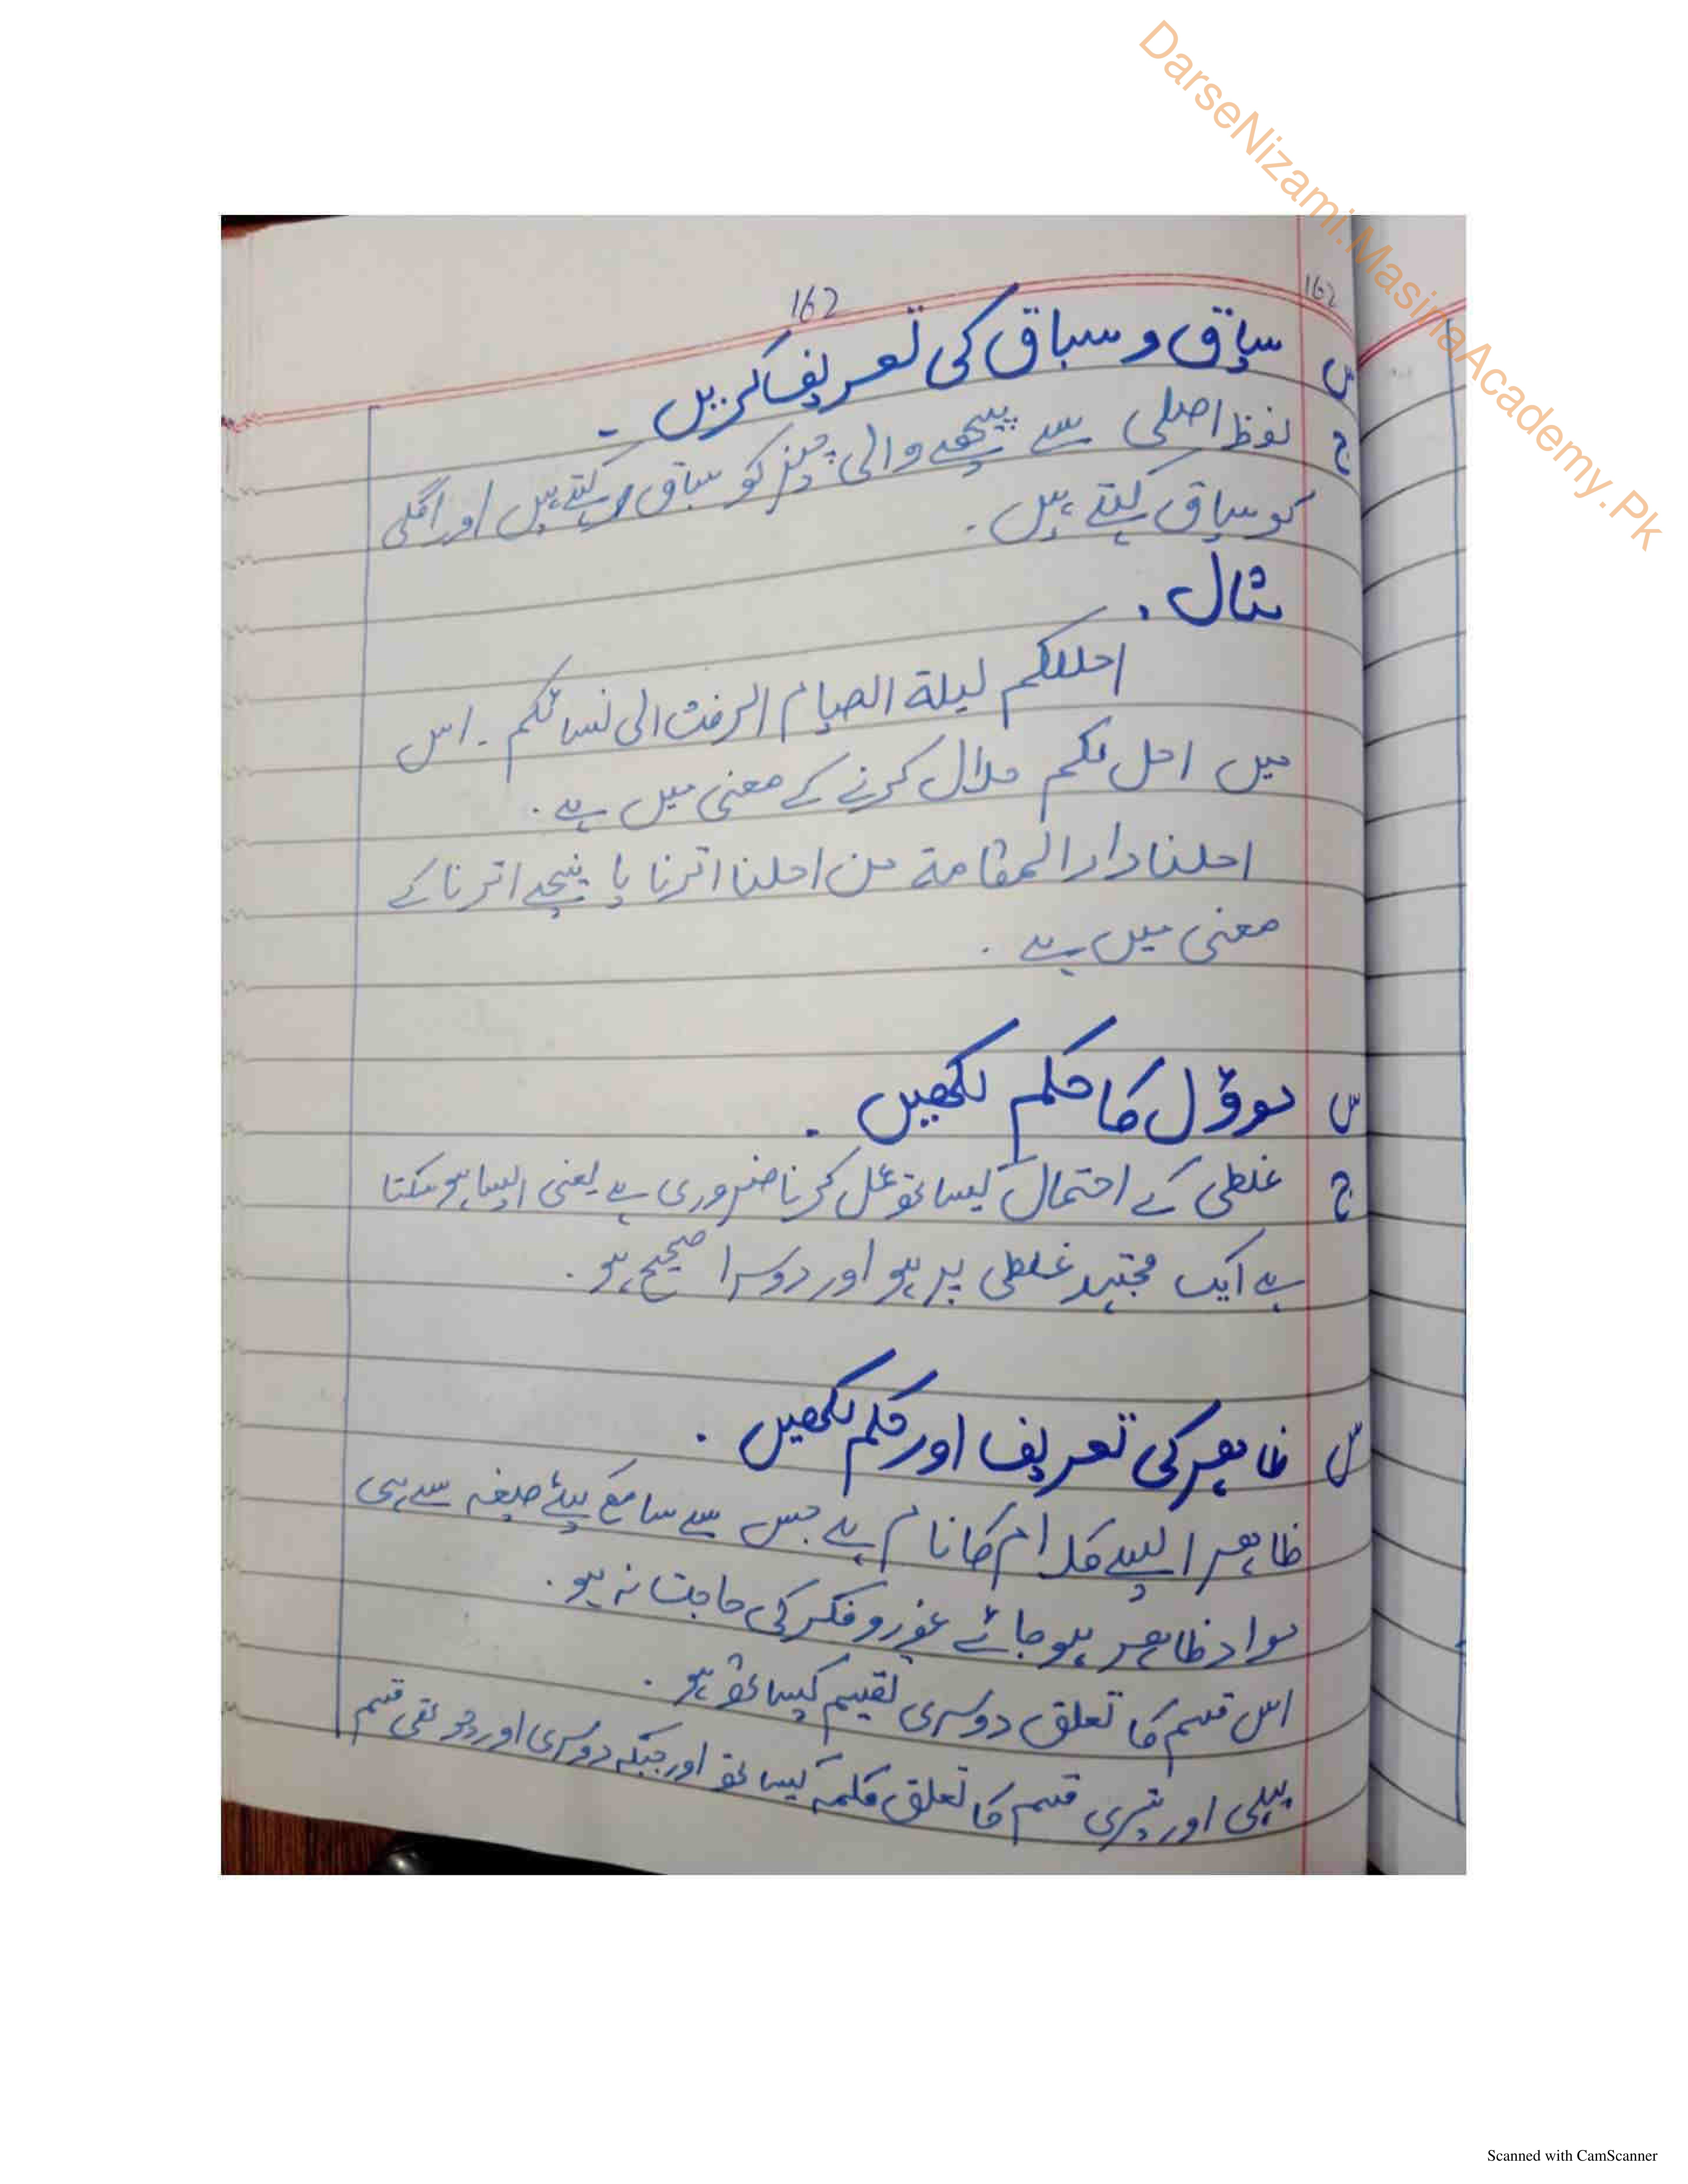 DarseNizami.MasihaAcademy.Pk
162
162
س سیاق و سباق کی تعریف کریں ۔
ج لفظ اصلی سے پیچھے والی چیز کو سباق کہتے ہیں اور اگلی
کو سیاق کہتے ہیں ۔
مثال ۔
احل لکم لیلة الصیام الرفث الی نسائکم ۔ اس
میں احل لکم حلال کرنے کے معنی میں ہے ۔
احلنا دارالمقامة من احلنا اترنا یا نیچے اترنا کے
معنی میں ہے ۔
س موؤل کا حکم لکھیں ۔
ج غلطی کے احتمال کیساتھ عمل کرنا ضروری ہے یعنی ایسا ہو سکتا
ہے ایک مجتہد غلطی پر ہو اور دوسرا صحیح ہو ۔
س ظاہر کی تعریف اور حکم لکھیں ۔
ظاہر ایسے کلام کا نام ہے جس سے سامع کیلئے صیغہ سے ہی
مراد ظاہر ہو جائے غور و فکر کی حاجت نہ ہو ۔
اس قسم کا تعلق دوسری تقسیم کیساتھ ہو ۔
پہلی اور تیسری قسم کا تعلق کلمہ کیساتھ اور جبکہ دوسری اور چوتھی قسم
Scanned with CamScanner